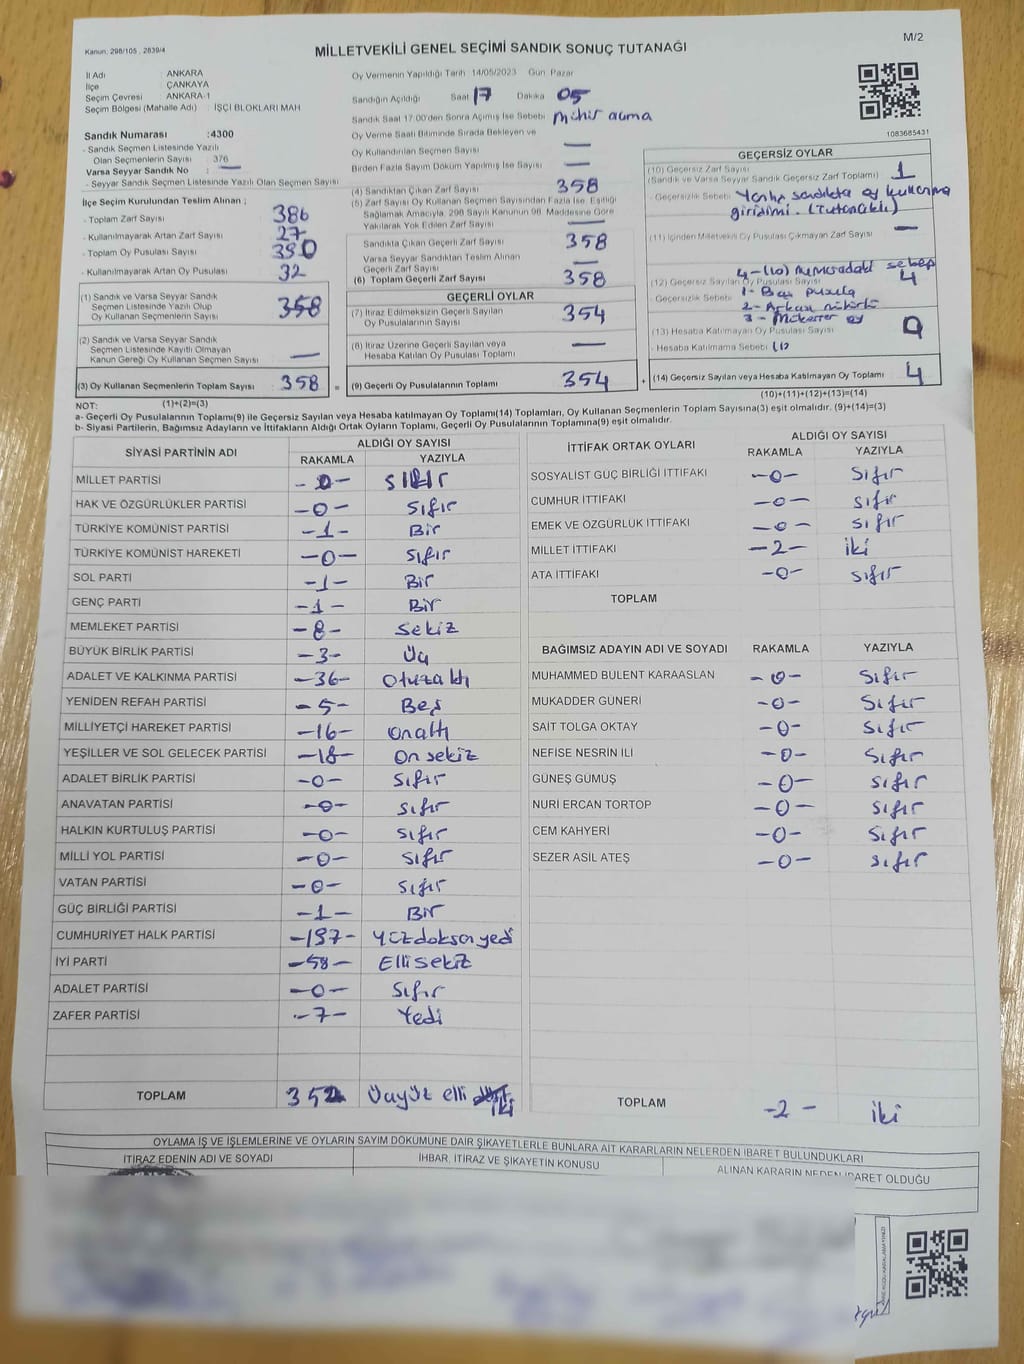 Kanun: 298/105 , 2839/4
MİLLETVEKİLİ GENEL SEÇİMİ SANDIK SONUÇ TUTANAĞI
M/2
İl Adı : ANKARA
İlçe : ÇANKAYA
Seçim Çevresi : ANKARA-1
Seçim Bölgesi (Mahalle Adı) : İŞÇİ BLOKLARI MAH
Sandık Numarası :4300
- Sandık Seçmen Listesinde Yazılı
Olan Seçmenlerin Sayısı : 376
Varsa Seyyar Sandık No : —
- Seyyar Sandık Seçmen Listesinde Yazılı Olan Seçmen Sayısı
İlçe Seçim Kurulundan Teslim Alınan ;
- Toplam Zarf Sayısı : 386
- Kullanılmayarak Artan Zarf Sayısı : 27
- Toplam Oy Pusulası Sayısı : 390
- Kullanılmayarak Artan Oy Pusulası : 32
(1) Sandık ve Varsa Seyyar Sandık
Seçmen Listesinde Yazılı Olup
Oy Kullanan Seçmen Sayısı : 358
(2) Sandık ve Varsa Seyyar Sandık
Seçmen Listesinde Kayıtlı Olmayan
Kanun Gereği Oy Kullanan Seçmen Sayısı : —
(3) Oy Kullanan Seçmenlerin Toplam Sayısı : 358 =
(1)+(2)=(3)
Oy Vermenin Yapıldığı Tarih 14/05/2023 Gün Pazar
Sandığın Açıldığı Saat 17 Dakika 05
Sandık Saat 17:00'den Sonra Açılmış İse Sebebi Mühür açma
Oy Verme Saati Bitiminde Sırada Bekleyen ve
Oy Kullandırılan Seçmen Sayısı —
Birden Fazla Sayım Döküm Yapılmış İse Sayısı —
(4) Sandıktan Çıkan Zarf Sayısı 358
(5) Zarf Sayısı Oy Kullanan Seçmen Sayısından Fazla İse, Eşitliği
Sağlamak Amacıyla, 298 Sayılı Kanunun 98. Maddesine Göre
Yakılarak Yok Edilen Zarf Sayısı —
Sandıkta Çıkan Geçerli Zarf Sayısı 358
Varsa Seyyar Sandıktan Teslim Alınan
Geçerli Zarf Sayısı —
(6) Toplam Geçerli Zarf Sayısı 358
GEÇERLİ OYLAR
(7) İtiraz Edilmeksizin Geçerli Sayılan
Oy Pusulalarının Sayısı 354
(8) İtiraz Üzerine Geçerli Sayılan veya
Hesaba Katılan Oy Pusulası Toplamı —
(9) Geçerli Oy Pusulalarının Toplamı 354 +
1083685431
GEÇERSİZ OYLAR
(10) Geçersiz Zarf Sayısı 1
(Sandık ve Varsa Seyyar Sandık Geçersiz Zarf Toplamı)
- Geçersizlik Sebebi: Yanlış sandıkta oy kullanma
giridimi. (Tutanaklı)
(11) İçinden Milletvekili Oy Pusulası Çıkmayan Zarf Sayısı —
4-(10) numaradaki sebep
(12) Geçersiz Sayılan Oy Pusulası Sayısı 4
- Geçersizlik Sebebi: 1- Boş pusula
2- Arkası mühürlü
3- Mükerrer oy
(13) Hesaba Katılmayan Oy Pusulası Sayısı 0
- Hesaba Katılmama Sebebi
(14) Geçersiz Sayılan veya Hesaba Katılmayan Oy Toplamı 4
(10)+(11)+(12)+(13)=(14)
NOT:
a- Geçerli Oy Pusulalarının Toplamı(9) ile Geçersiz Sayılan veya Hesaba katılmayan Oy Toplam(14) Toplamları, Oy Kullanan Seçmenlerin Toplam Sayısına(3) eşit olmalıdır. (9)+(14)=(3)
b- Siyasi Partilerin, Bağımsız Adayların ve İttifakların Aldığı Ortak Oyların Toplamı, Geçerli Oy Pusulalarının Toplamına(9) eşit olmalıdır.
SİYASİ PARTİNİN ADI ALDIĞI OY SAYISI
RAKAMLA YAZIYLA
MİLLET PARTİSİ -0- sıfır
HAK VE ÖZGÜRLÜKLER PARTİSİ -0- sıfır
TÜRKİYE KOMÜNİST PARTİSİ -1- Bir
TÜRKİYE KOMÜNİST HAREKETİ -0- sıfır
SOL PARTİ -1- Bir
GENÇ PARTİ -1- Bir
MEMLEKET PARTİSİ -8- sekiz
BÜYÜK BİRLİK PARTİSİ -3- Üç
ADALET VE KALKINMA PARTİSİ -36- Otuzaltı
YENİDEN REFAH PARTİSİ -5- Beş
MİLLİYETÇİ HAREKET PARTİSİ -16- Onaltı
YEŞİLLER VE SOL GELECEK PARTİSİ -18- On sekiz
ADALET BİRLİK PARTİSİ -0- Sıfır
ANAVATAN PARTİSİ -0- sıfır
HALKIN KURTULUŞ PARTİSİ -0- sıfır
MİLLİ YOL PARTİSİ -0- sıfır
VATAN PARTİSİ -0- sıfır
GÜÇ BİRLİĞİ PARTİSİ -1- Bir
CUMHURİYET HALK PARTİSİ -197- Yüzdoksan yedi
İYİ PARTİ -58- Elli sekiz
ADALET PARTİSİ -0- Sıfır
ZAFER PARTİSİ -7- Yedi
TOPLAM 352 Üçyüz elli iki
İTTİFAK ORTAK OYLARI ALDIĞI OY SAYISI
RAKAMLA YAZIYLA
SOSYALİST GÜÇ BİRLİĞİ İTTİFAKI -0- sıfır
CUMHUR İTTİFAKI -0- sıfır
EMEK VE ÖZGÜRLÜK İTTİFAKI -0- sıfır
MİLLET İTTİFAKI -2- iki
ATA İTTİFAKI -0- sıfır
TOPLAM
BAĞIMSIZ ADAYIN ADI VE SOYADI RAKAMLA YAZIYLA
MUHAMMED BÜLENT KARAASLAN -0- Sıfır
MUKADDER GÜNERİ -0- Sıfır
SAİT TOLGA OKTAY -0- Sıfır
NEFİSE NESRİN İLİ -0- Sıfır
GÜNEŞ GÜMÜŞ -0- sıfır
NURİ ERCAN TORTOP -0- sıfır
CEM KAHYERİ -0- sıfır
SEZER ASİL ATEŞ -0- sıfır
TOPLAM -2- iki
OYLAMA İŞ VE İŞLEMLERİNE VE OYLARIN SAYIM DÖKÜMÜNE DAİR ŞİKAYETLERLE BUNLARA AİT KARARLARIN NELERDEN İBARET BULUNDUKLARI
İTİRAZ EDENİN ADI VE SOYADI İHBAR, İTİRAZ VE ŞİKAYETİN KONUSU ALINAN KARARIN NEDEN İBARET OLDUĞU